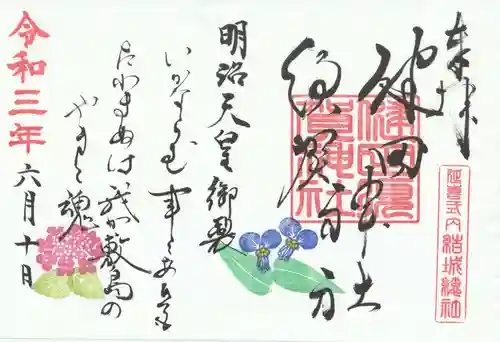 奉拝
延喜式内結城總社
健田神社
須賀神社
健田須賀神社
明治天皇御製
いかならむ事にあひても
たわまぬは我が敷島の
やまと魂
令和三年六月十日